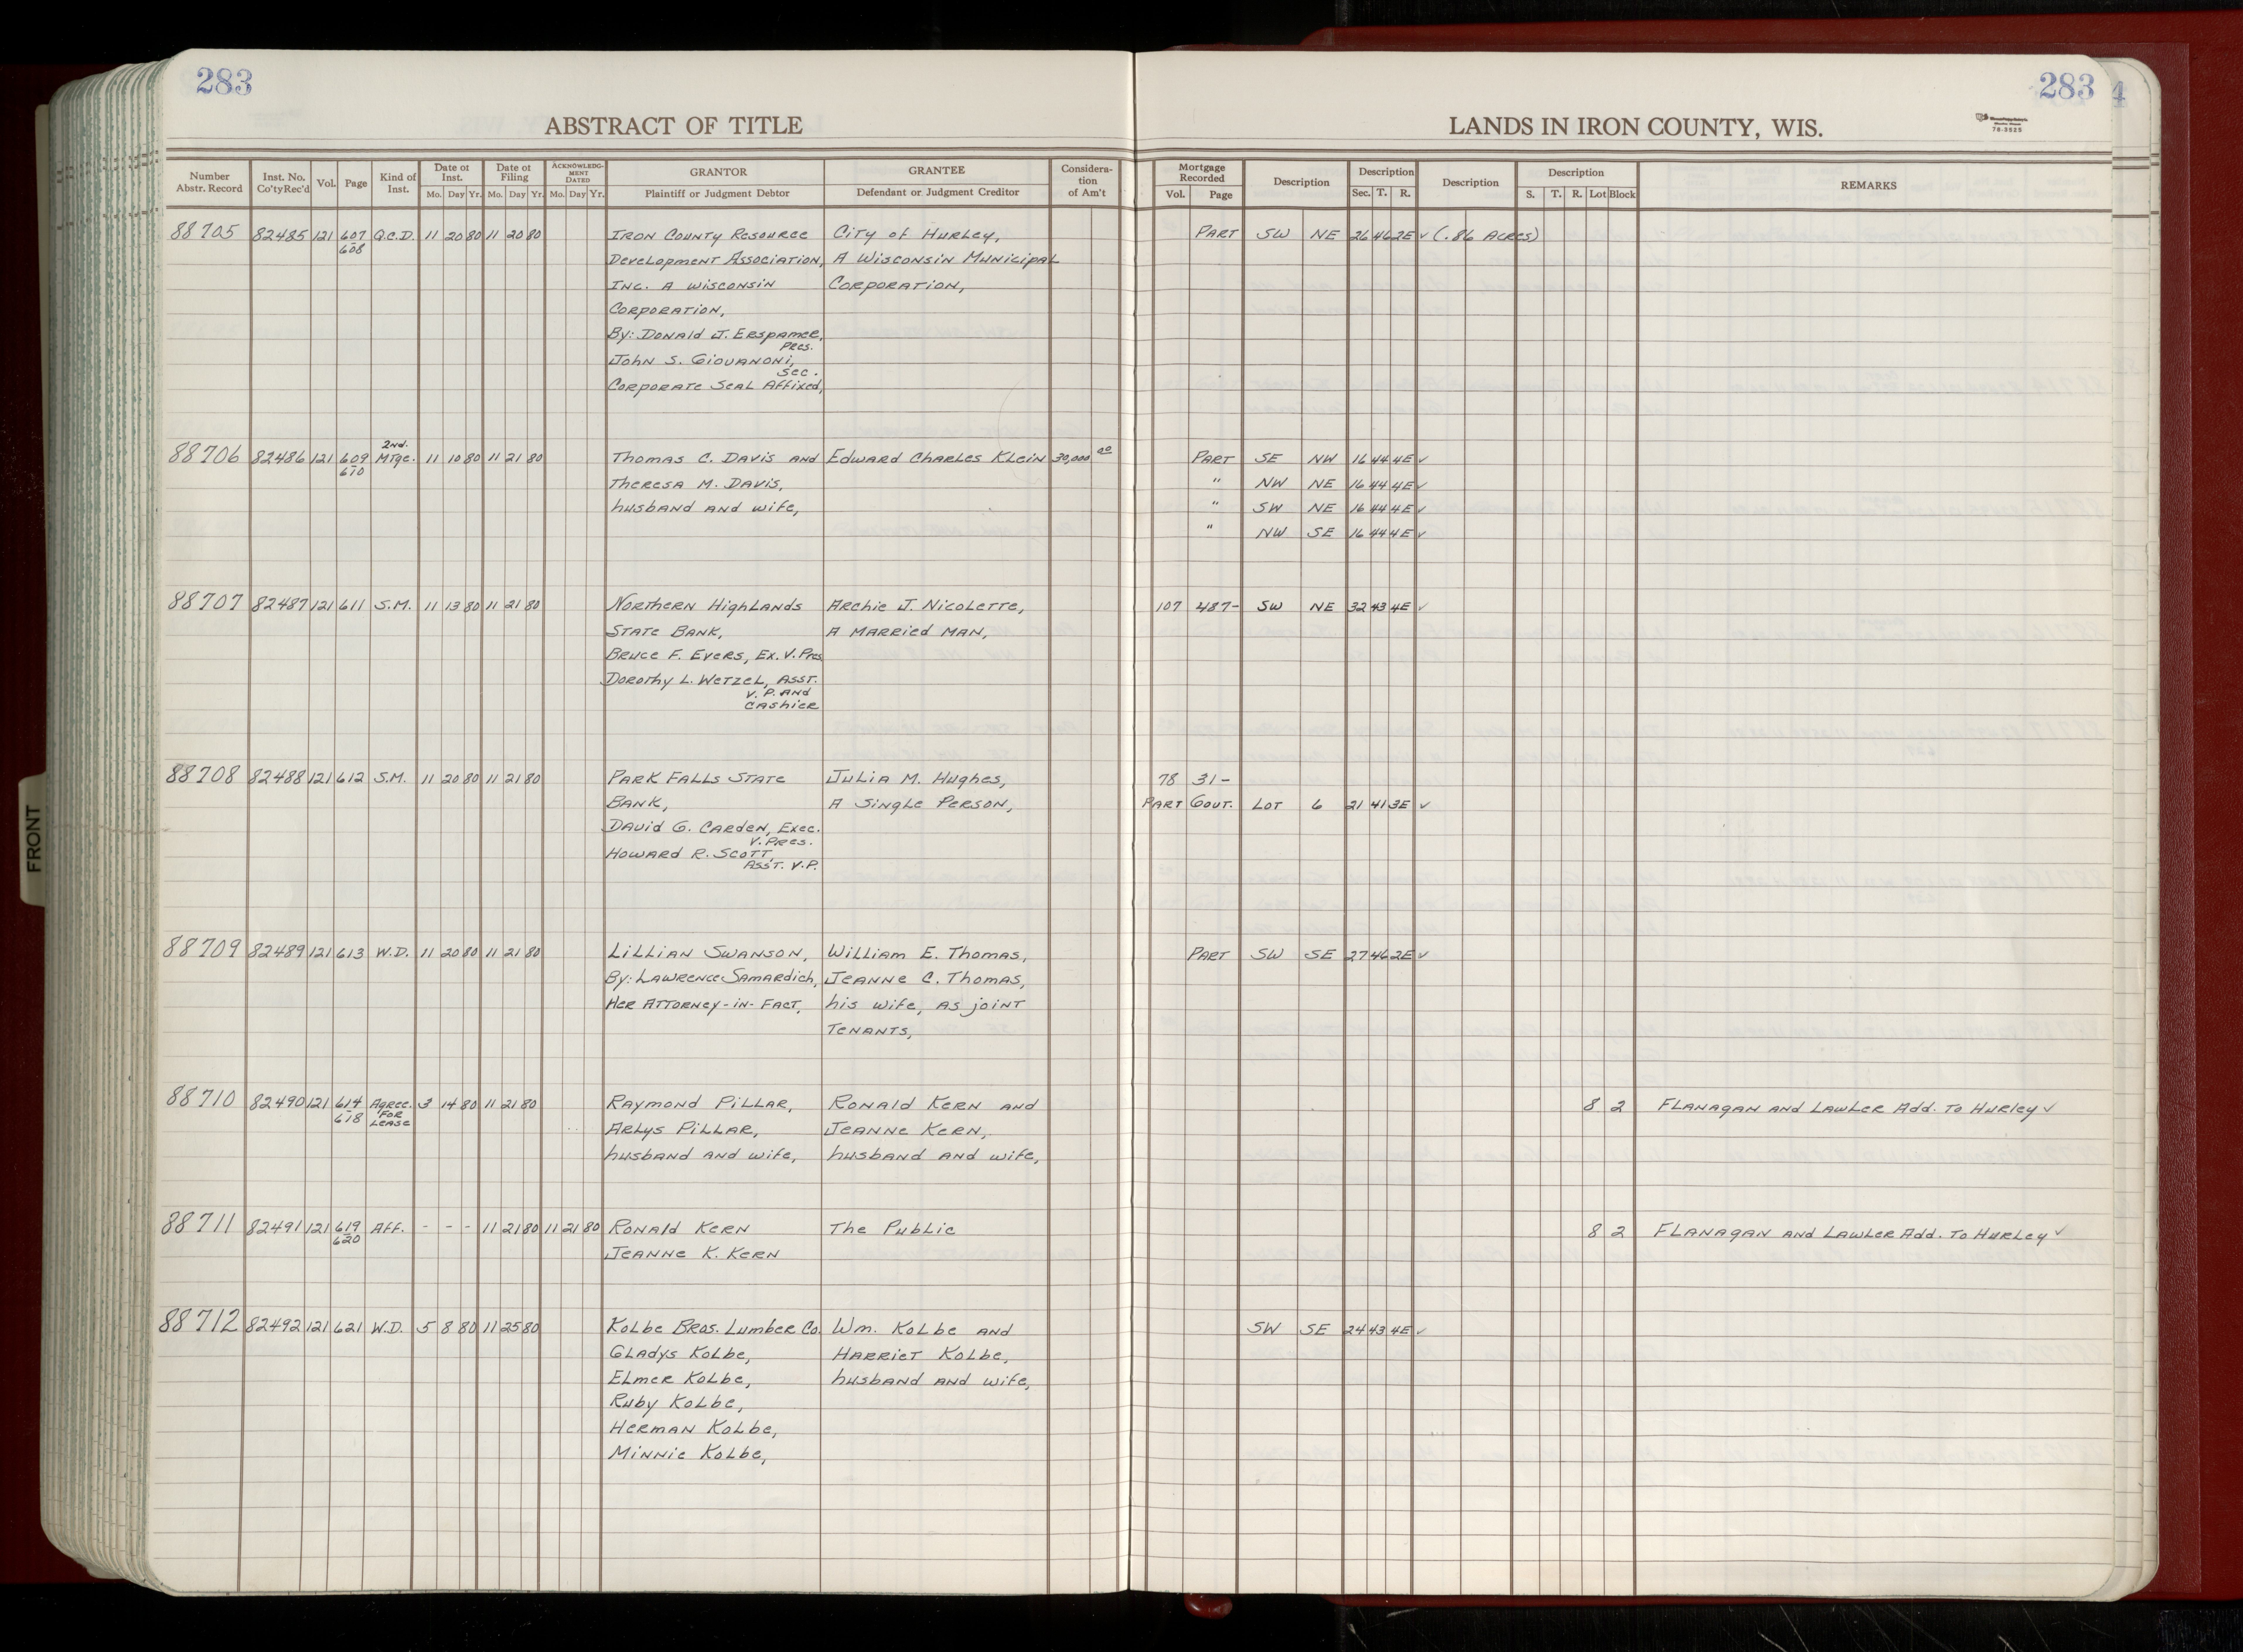 283
283
ABSTRACT OF TITLE
LANDS IN IRON COUNTY, WIS.
78-3525
Number Abstr. Record | Inst. No. Co'ty Rec'd | Vol. | Page | Kind of Inst. | Date of Inst. Mo. Day Yr. | Date of Filing Mo. Day Yr. | ACKNOWLEDGMENT DATED Mo. Day Yr. | GRANTOR Plaintiff or Judgment Debtor | GRANTEE Defendant or Judgment Creditor | Consideration of Am't | Mortgage Recorded Vol. Page | Description | Description Sec. T. R. | Description | Description S. T. R. Lot Block | REMARKS
88705 82485 121 607 Q.C.D. 11 20 80 11 20 80 Iron County Resource City of Hurley, Part SW NE 26 46 2E ✓ (.86 Acres)
608
Development Association, A Wisconsin Municipal
Inc. A Wisconsin Corporation,
Corporation,
By: Donald J. Erspamer,
Pres.
John S. Giovanoni,
Sec.
Corporate Seal Affixed,
2nd.
88706 82486 121 609 Mtge. 11 10 80 11 21 80 Thomas C. Davis and Edward Charles Klein 30,000 00 Part SE NW 16 44 4E ✓
610
Theresa M. Davis, " NW NE 16 44 4E ✓
husband and wife, " SW NE 16 44 4E ✓
" NW SE 16 44 4E ✓
88707 82487 121 611 S.M. 11 13 80 11 21 80 Northern Highlands Archie J. Nicolette, 107 487- SW NE 32 43 4E ✓
State Bank, A married man,
Bruce F. Evers, Ex. V. Pres
Dorothy L. Wetzel, Asst.
V. P. and
Cashier
88708 82488 121 612 S.M. 11 20 80 11 21 80 Park Falls State Julia M. Hughes, 78 31-
Bank, A Single Person, Part Gout. Lot 6 21 41 3E ✓
David G. Carden, Exec.
V. Pres.
Howard R. Scott,
Ass't. V.P.
88709 82489 121 613 W.D. 11 20 80 11 21 80 Lillian Swanson, William E. Thomas, Part SW SE 27 46 2E ✓
By: Lawrence Samardich, Jeanne C. Thomas,
Her Attorney-in-Fact, his wife, as joint
Tenants,
88710 82490 121 614 Agree. 3 14 80 11 21 80 Raymond Pillar, Ronald Kern and 8 2 Flanagan and Lawler Add. To Hurley ✓
618 For
Lease
Arlys Pillar, Jeanne Kern,
husband and wife, husband and wife,
88711 82491 121 619 Aff. - - - 11 21 80 11 21 80 Ronald Kern The Public 8 2 Flanagan and Lawler Add. To Hurley ✓
620
Jeanne K. Kern
88712 82492 121 621 W.D. 5 8 80 11 25 80 Kolbe Bros. Lumber Co. Wm. Kolbe and SW SE 24 43 4E ✓
Gladys Kolbe, Harriet Kolbe,
Elmer Kolbe, husband and wife,
Ruby Kolbe,
Herman Kolbe,
Minnie Kolbe,
FRONT